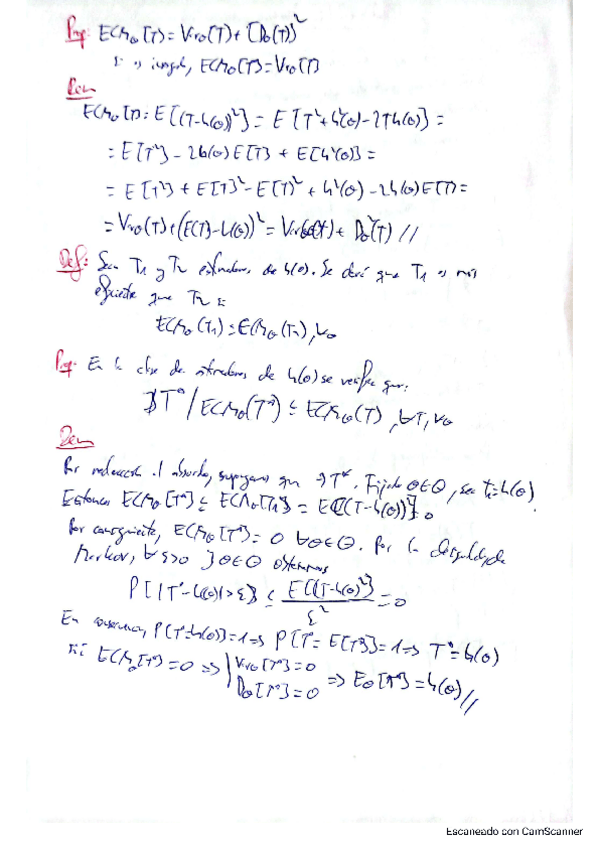 Prop: ECMθ(T) = Varθ(T) + [Dθ(T)]²
Si es insesgado, ECMθ(T) = Varθ(T)
Dem
ECMθ[T] = E[(T-h(θ))²] = E[T² + h²(θ) - 2Th(θ)] =
= E[T²] - 2h(θ)E[T] + E[h²(θ)] =
= E[T²] + E[T]² - E[T]² + h²(θ) - 2h(θ)E[T] =
= Varθ(T) + (E(T) - h(θ))² = Varθ(T) + Dθ²(T) //
Def: Sean T1 y T2 estimadores de h(θ). Se dirá que T1 es más
eficiente que T2 si
ECMθ(T1) ≤ ECMθ(T2), ∀θ
Prop: En la clase de estimadores de h(θ) se verifica que:
∄T* / ECMθ(T*) ≤ ECMθ(T), ∀T, ∀θ
Dem
Por reducción al absurdo, supongamos que ∃T*. Fijado θ∈Θ, sea T=h(θ).
Entonces ECMθ[T*] ≤ ECMθ[T] = E[(T-h(θ))²] = 0
Por consiguiente, ECMθ[T*] = 0 ∀θ∈Θ. Por la desigualdad de
Markov, ∀ε>0 ∃θ∈Θ obtenemos
P[|T*-h(θ)|>ε] ≤ E[(T-h(θ))²] / ε² = 0
En consecuencia, P[T*=h(θ)]=1 => P[T*=E[T*]]=1 => T*=h(θ)
Si ECMθ[T*]=0 => Varθ[T*]=0
Dθ[T*]=0 => Eθ[T*]=h(θ) //
Escaneado con CamScanner